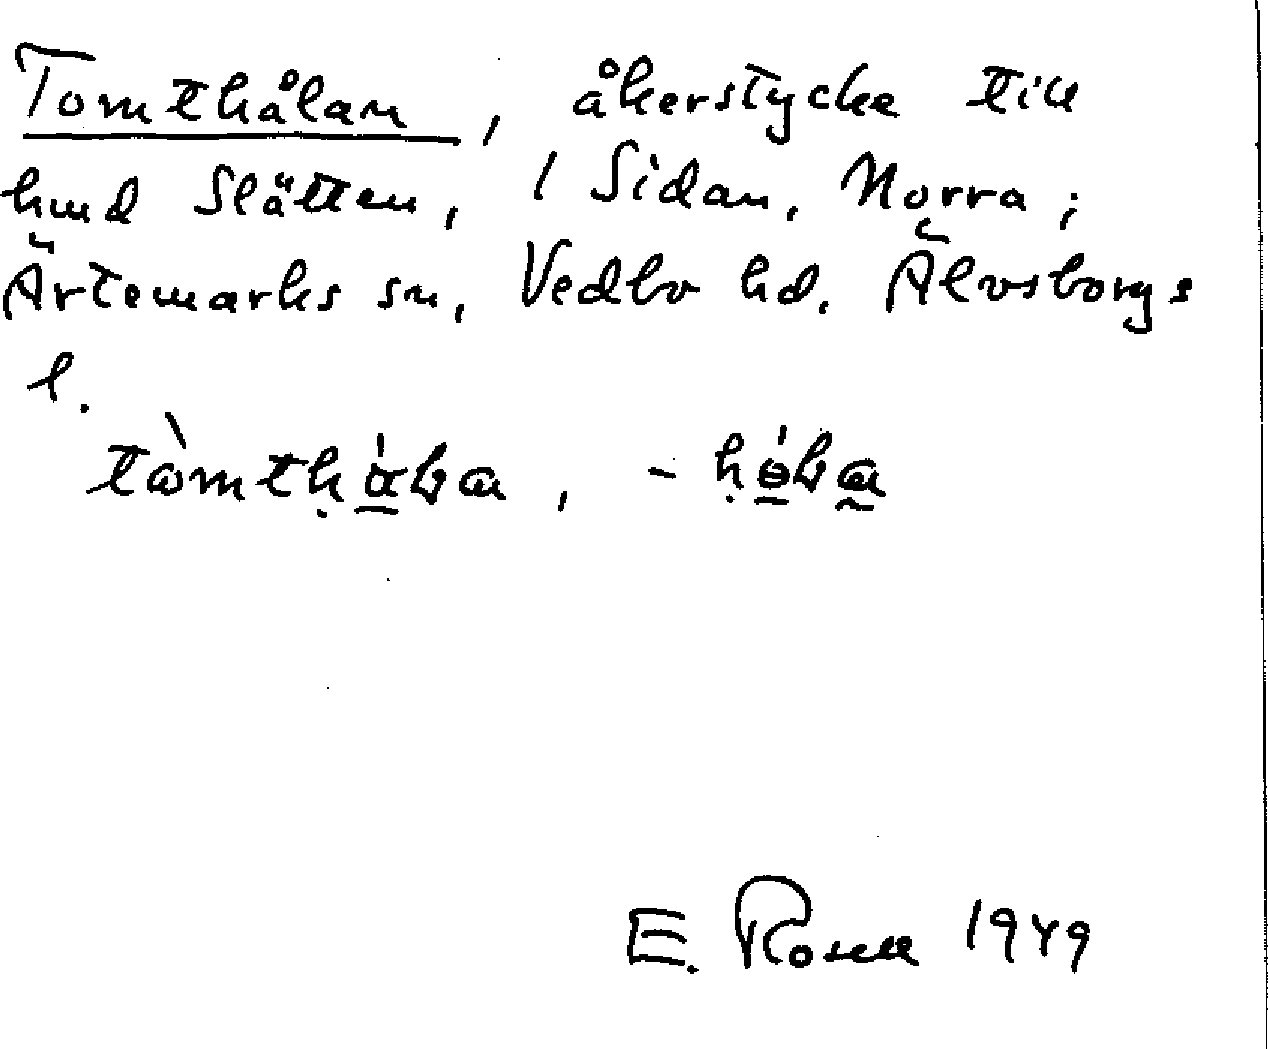 Tomthålan, åkerstycke till
hmd Slätten, 1 Sidan, Norra i
Ärtemarks sn, Vedbo hd. Älvsborgs
l.
E. Rosell 1949